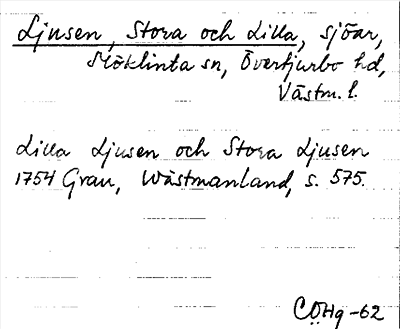 Ljusen, Stora och Lilla, sjöar,
Möklinta sn, Övertjurbo hd,
Västm. l.
Lilla Ljusen och Stora Ljusen
1754 Grau, Wästmanland, s. 575.
CÖHg -62